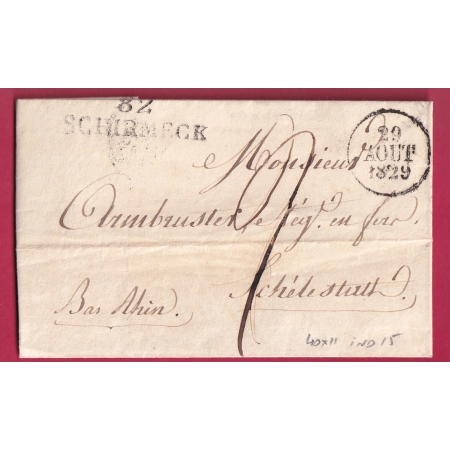 82
SCHIRMECK
29
AOUT
1829
Monsieur
Armbruster le jég. en fer.
Schélestatt.
Bas Rhin.
40x11 IND 15